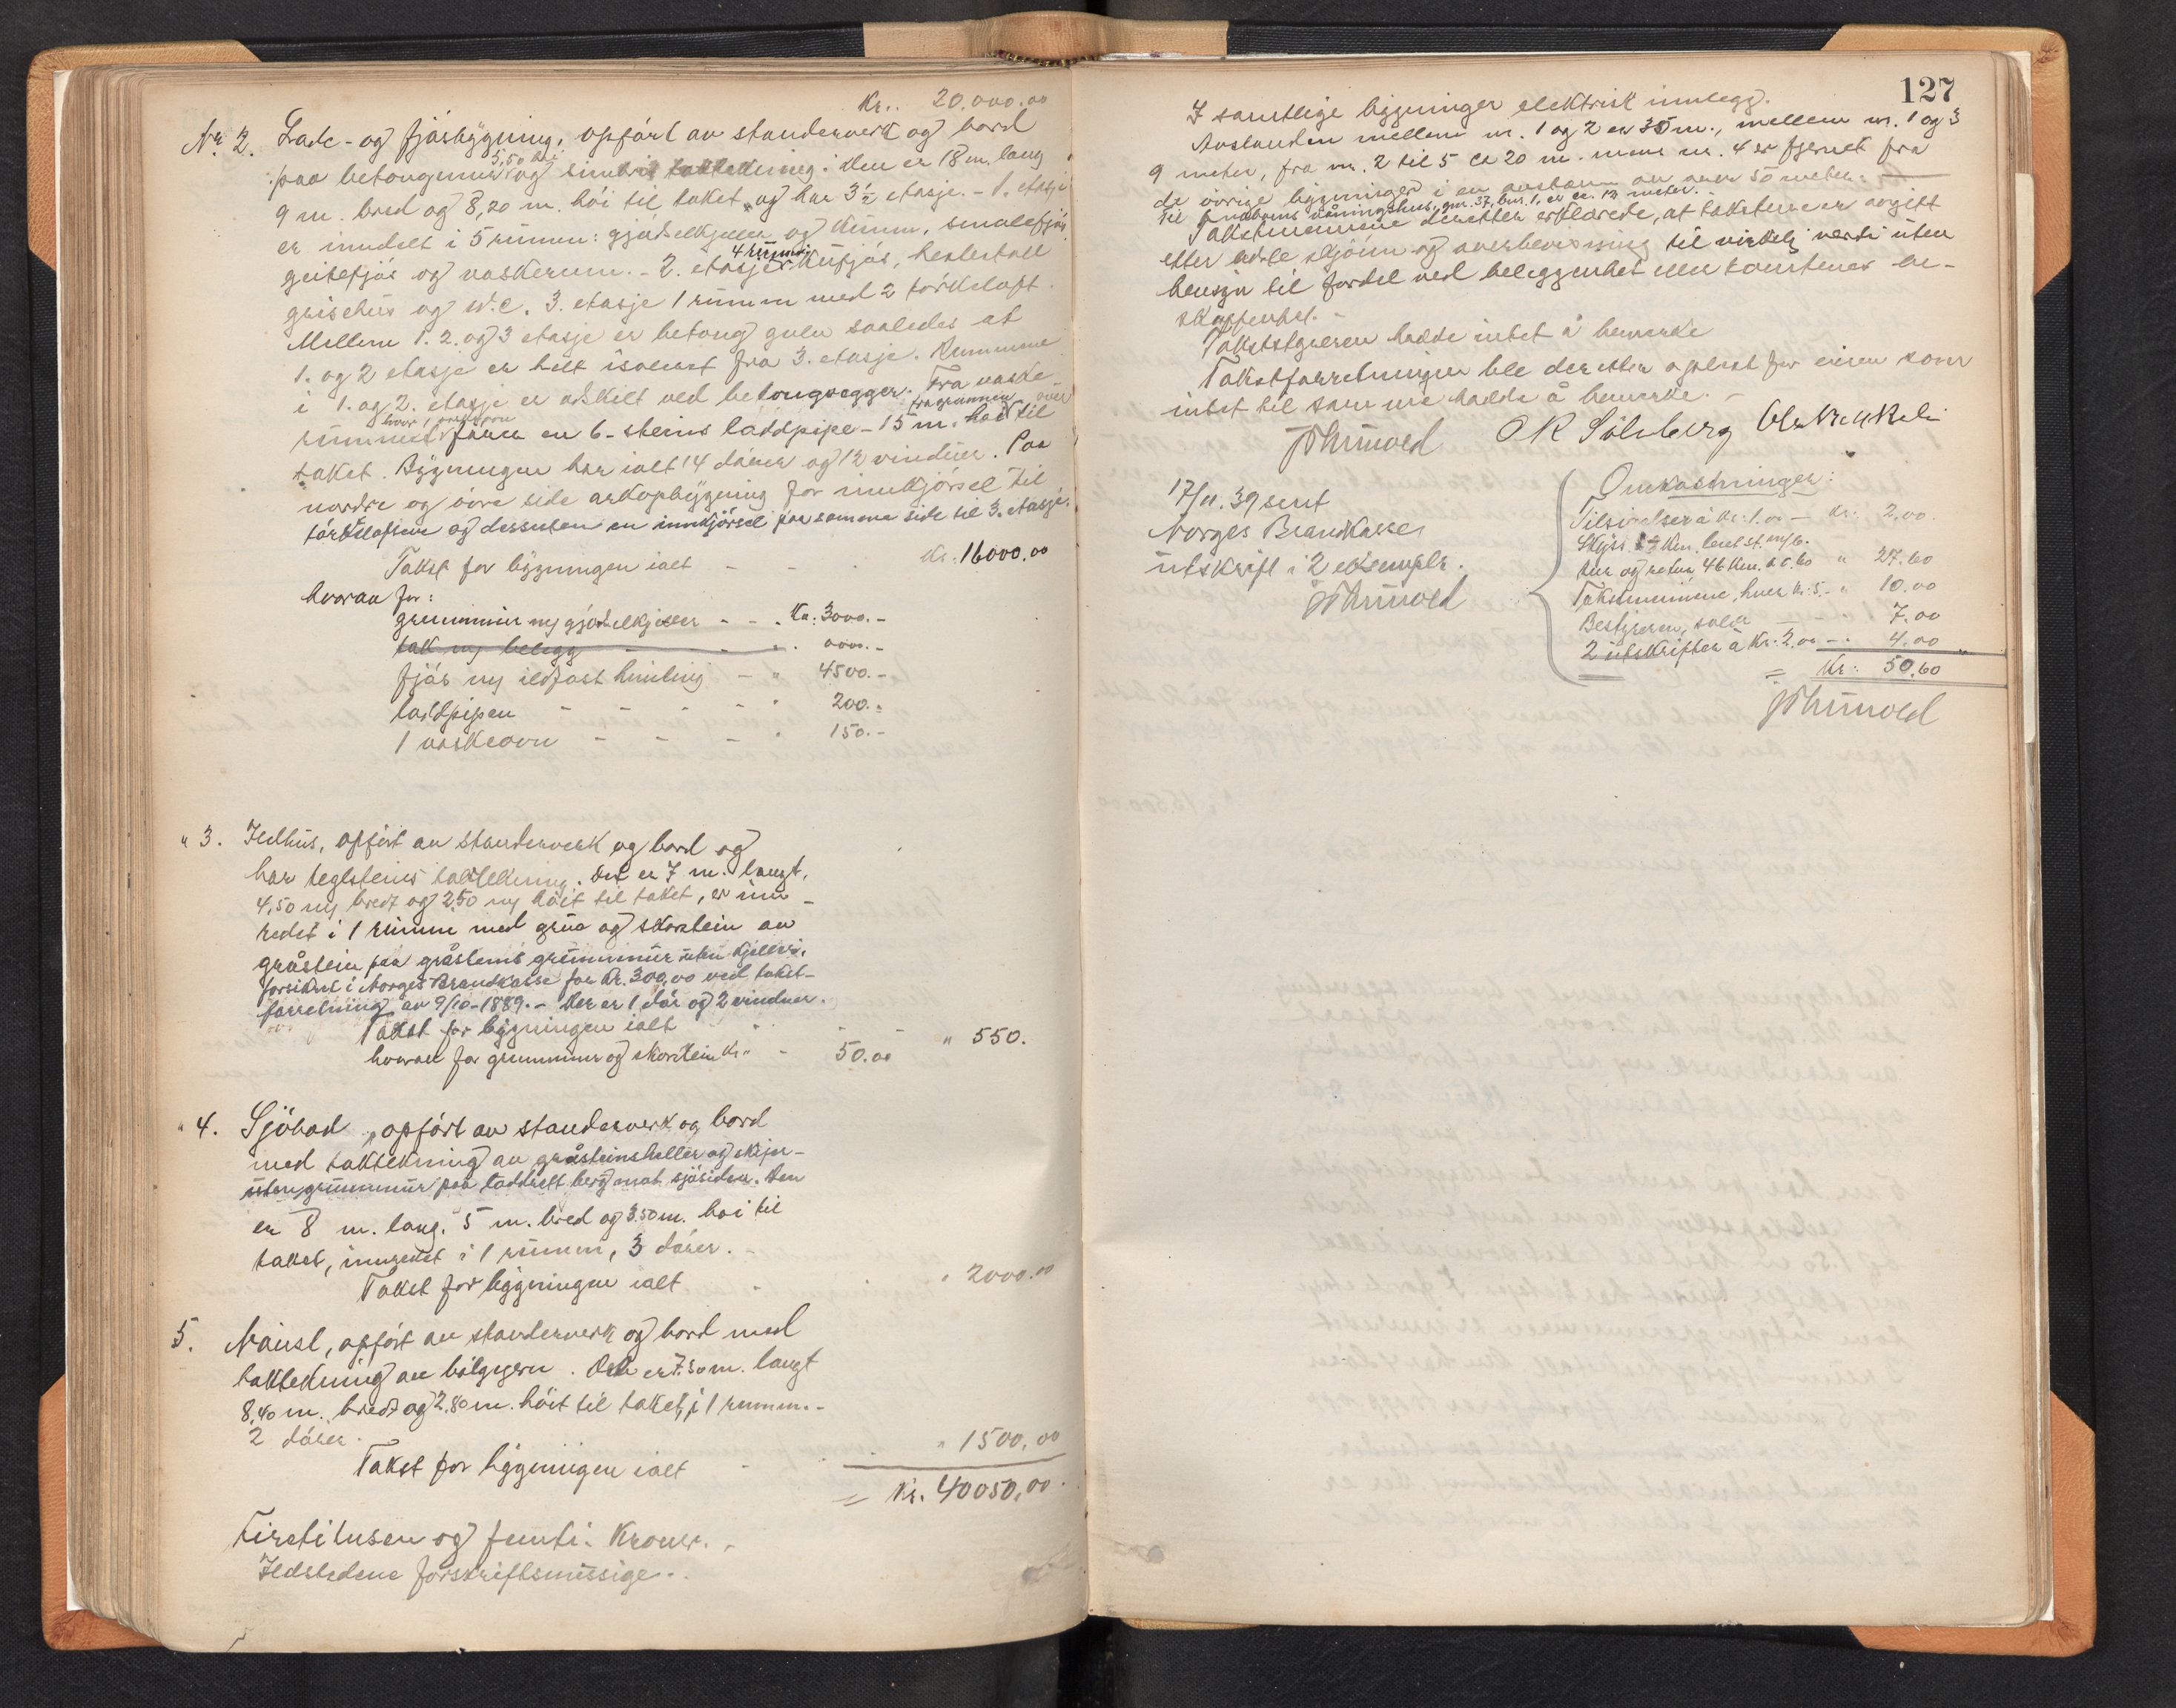 Kr.. 20.000.00
Nr. 2. Lade- og fjösbygning, opfört av standerverk og bord
paa betongmur 3,50 höi og taktekning. Den er 18 m. lang
9 m. bred og 8,20 m. höi til taket, og har 3½ etasje. - 1. etasje
er inndelt i 5 rumm: gjödselkjeller og kumm, smalefjös
geitefjös og vaskerum. - 2. etasje 4 rumm: kufjös, hestestall
grisehus og W.C. 3. etasje 1 rumm med 2 törkeloft.
Mellem 1. 2. og 3 etasje er betong gulv saaledes at
1. og 2 etasje er helt isolert fra 3. etasje. Rummene
i 1. og 2. etasje er adskilt ved betongvegger. Fra vaske-
rummet hvor 1 vaskeovn förer en 6-steins laddpipe - 15 m. höi fra grunnen til over
taket. Bygningen har ialt 14 dörer og 12 vinduer. Paa
nordre og övre side arkopbygning for innkjörsel til
törkeloftene og dessuten en innkjörsel paa samme side til 3. etasje.
Takst for bygningen ialt - - . Kr. 16000.00
hvorav for:
grunnmur m/ gjödselkjeller - - . Kr. 3000.-
tak m/ belegg
fjös m/ ildfast himling - " 4500.-
laddpipen - - - - " 200.-
1 vaskeovn - - - " 150.-
" 3. Ildhus, opfört av standerverk og bord og
har teglsteins taktekning. Det er 7 m. langt,
4,50 m/ bredt og 2,50 m/ höit til taket, er inn-
redet i 1 rumm med grua og skorstein av
gråstein paa gråsteins grunnmur uten kjeller.
forsikret i Norges Brandkasse for Kr. 300,00 ved takst-
forretning av 9/10-1889. - Der er 1 dör og 2 vinduer.
Takst for bygningen ialt - - " 550.
hvorav for grunnmur og skorstein Kr. - 50.00
" 4. Sjöbod, opfört av standerverk og bord
med taktekning av gråsteinsheller og skifer-
uten grunnmur paa berg mot sjösiden. Den
er 8 m. lang, 5 m. bred og 3.50 m. höi til
taket, innredet i 1 rumm, 3 dörer. -
Takst for bygningen ialt - . " 2000.00
5. Naust, opfört av standerverk og bord med
taktekning av bölgejern. Det er 7.50 m. langt
8,40 m. bredt og 2.80 m. höit til taket, i 1 rumm. -
2 dörer.
Takst for bygningen ialt - " 1500,00
= Kr. 40050,00.
Firetitusen og femti: Kroner. -
Ildstedene forskriftsmessige. -
127
I samtlige bygninger elektrisk innlegg.
Avstanden mellem nr. 1 og 2 er 35 m., mellem nr. 1 og 3
9 meter, fra nr. 2 til 5 ca 20 m. mens nr. 4 er fjernet fra
de övrige bygninger i en avstand av over 50 meter. -
Til naboens våningshus, gnr. 37, bnr. 1. er ca. 12 meter.
Takstmennene derefter erklærede, at taksten er avgitt
efter beste skjönn og overbevisning til virkelig verdi uten
hensyn til fordel ved beliggenhet eller konstens be-
skaffenhet. -
Takstgiveren hadde intet å bemerke
Takstforretningen ble deretter oplest for eieren som
intet til samme hadde å bemerke. -
O K Sölvberg
17/11.39 sent
Norges Brandkasse
utskrift i 2 eksemplr.
Omkostninger:
Tilsigelser à Kr. 1.00 - Kr. 2,00
Skyss
tur og retur 46 km. à 0.60 " 27.60
Takstmennene, hver Kr. 5. - " 10.00
Bestyreren, - - " 7.00
2 utskrifter à Kr. 2.00 - " 4.00
= Kr: 50.60